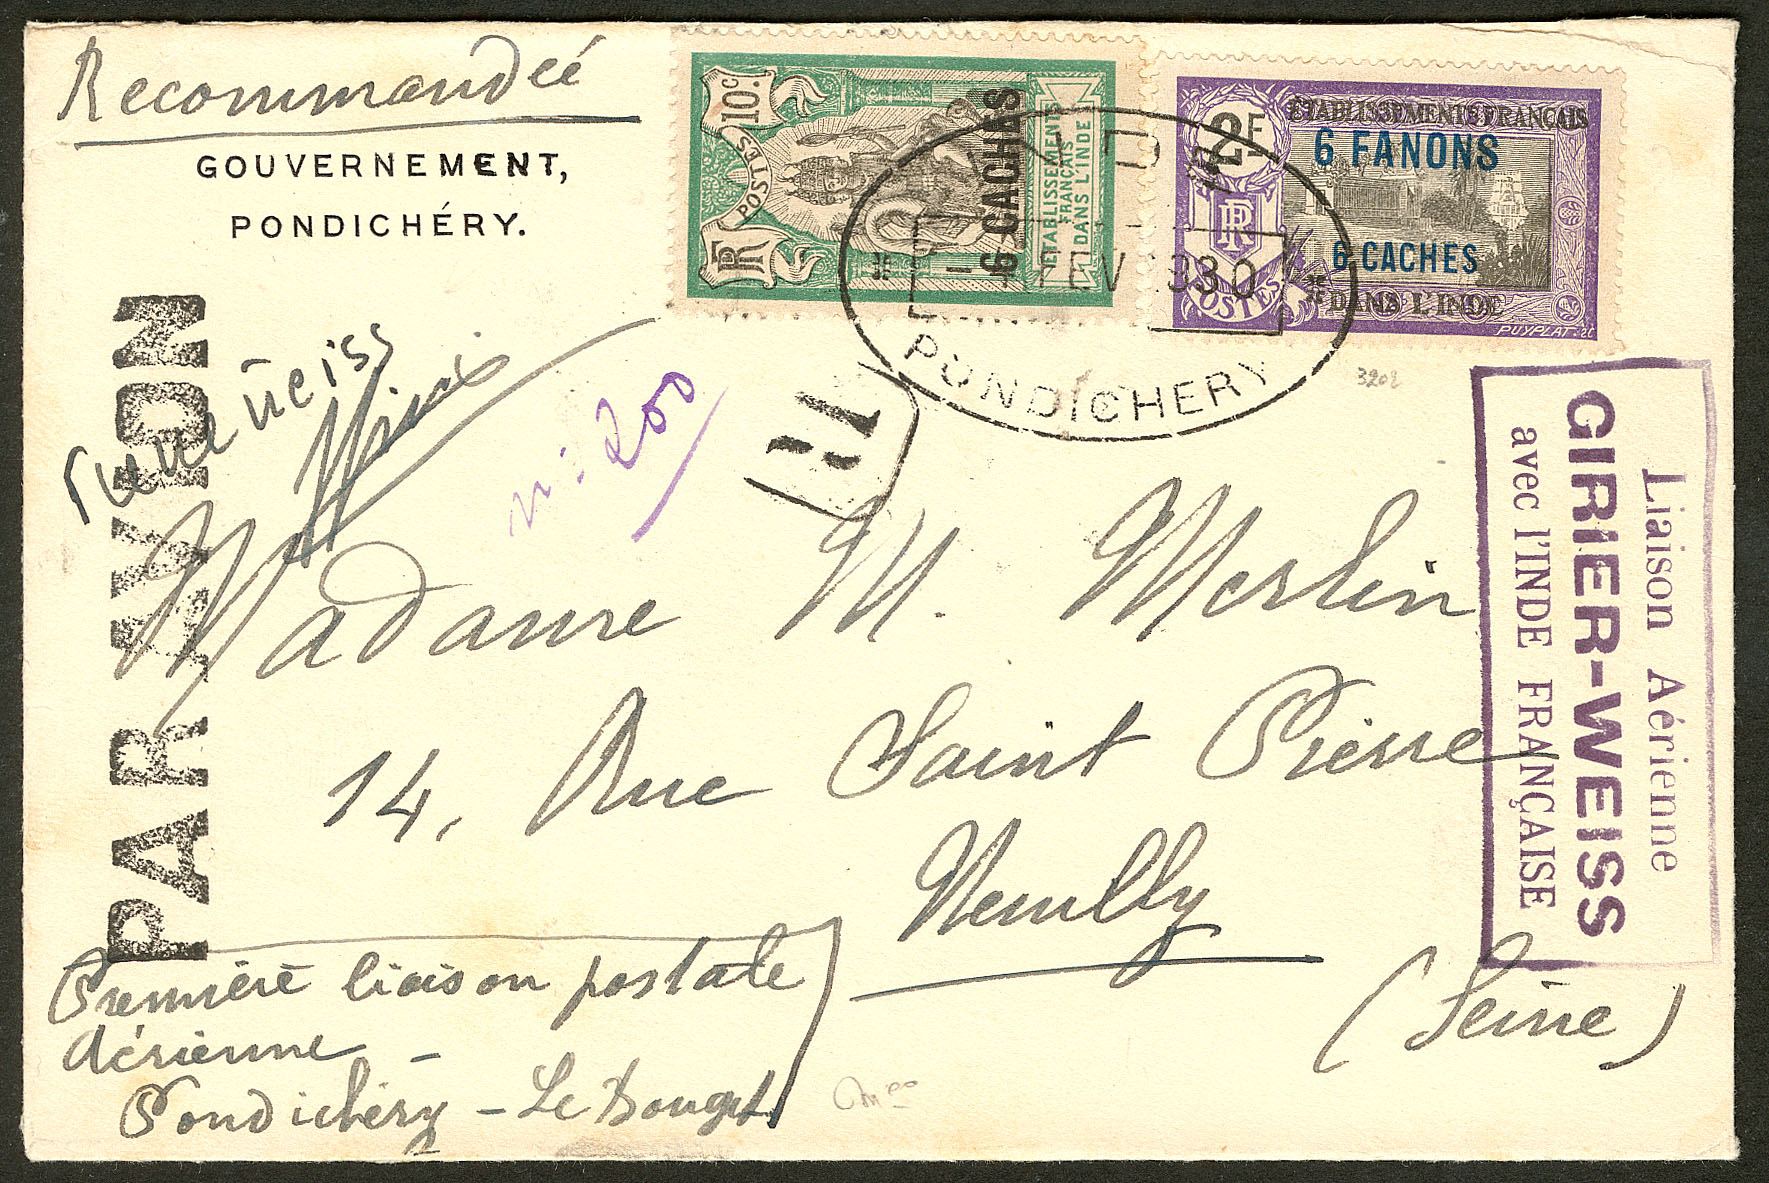 Recommandée
GOUVERNEMENT,
PONDICHÉRY.
10c.
POSTES
RF
ETABLISSEMENTS
FRANÇAIS
DANS L'INDE
6 CACHES
2F
ÉTABLISSEMENTS FRANÇAIS
6 FANONS
RF
6 CACHES
POSTES
DANS L'INDE
PUYPLAT
1930
PONDICHERY
3202
PAR AVION
n: 200
R
Liaison Aérienne
GIRIER-WEISS
avec l'INDE FRANÇAISE
Madame M. Merlin
14, Rue Saint Pierre
Neuilly
(Seine)
Première liaison postale
aérienne -
Pondichéry - Le Bourget